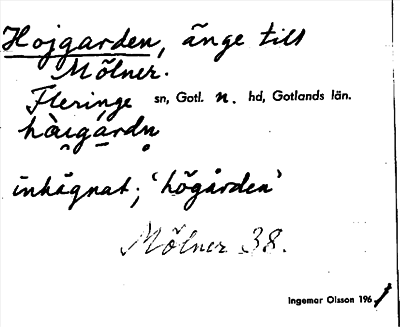 Hojgarden, änge till
Mölner.
Fleringe sn, Gotl. n. hd, Gotlands län.
hàigárdn
inhägnat; 'högården'
Mölner 38.
Ingemar Olsson 196